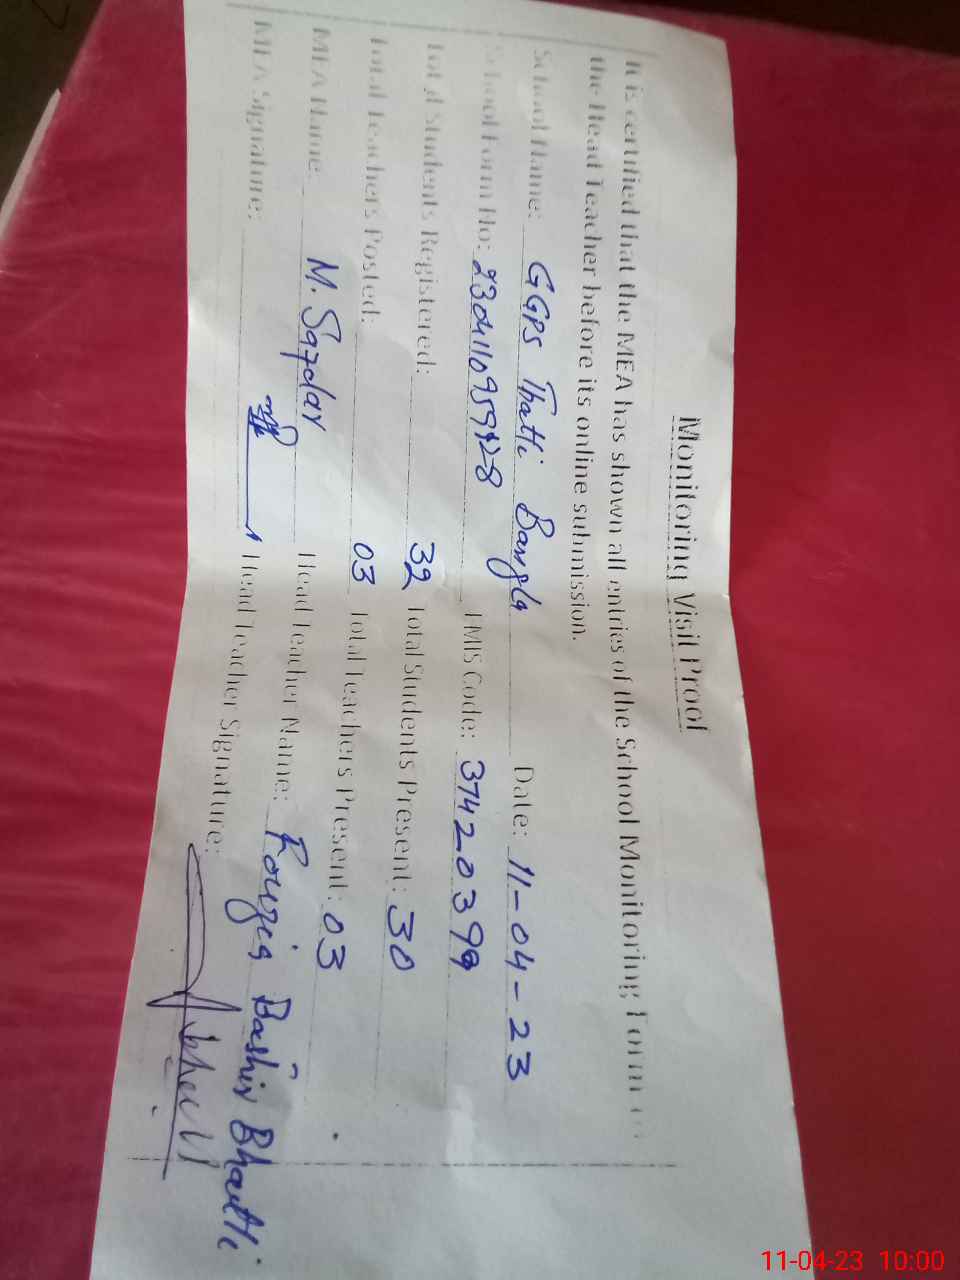 Monitoring Visit Proof
It is certified that the MEA has shown all entries of the School Monitoring Form to
the Head Teacher before its online submission.
School Name: GGPS Thatti Bangla Date: 11-04-23
School Form No: EMIS Code: 37420399
Total Students Registered: 32 Total Students Present: 30
Total Teachers Posted: 03 Total Teachers Present: 03
MEA Name: M. Safdar Head Teacher Name: Rouzia Bashir Bhatti
MEA Signature: Head Teacher Signature:
11-04-23 10:00